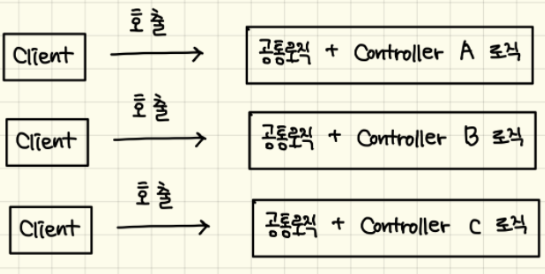 호출
Client 공통로직 + Controller A 로직
호출
Client 공통로직 + Controller B 로직
호출
Client 공통로직 + Controller C 로직